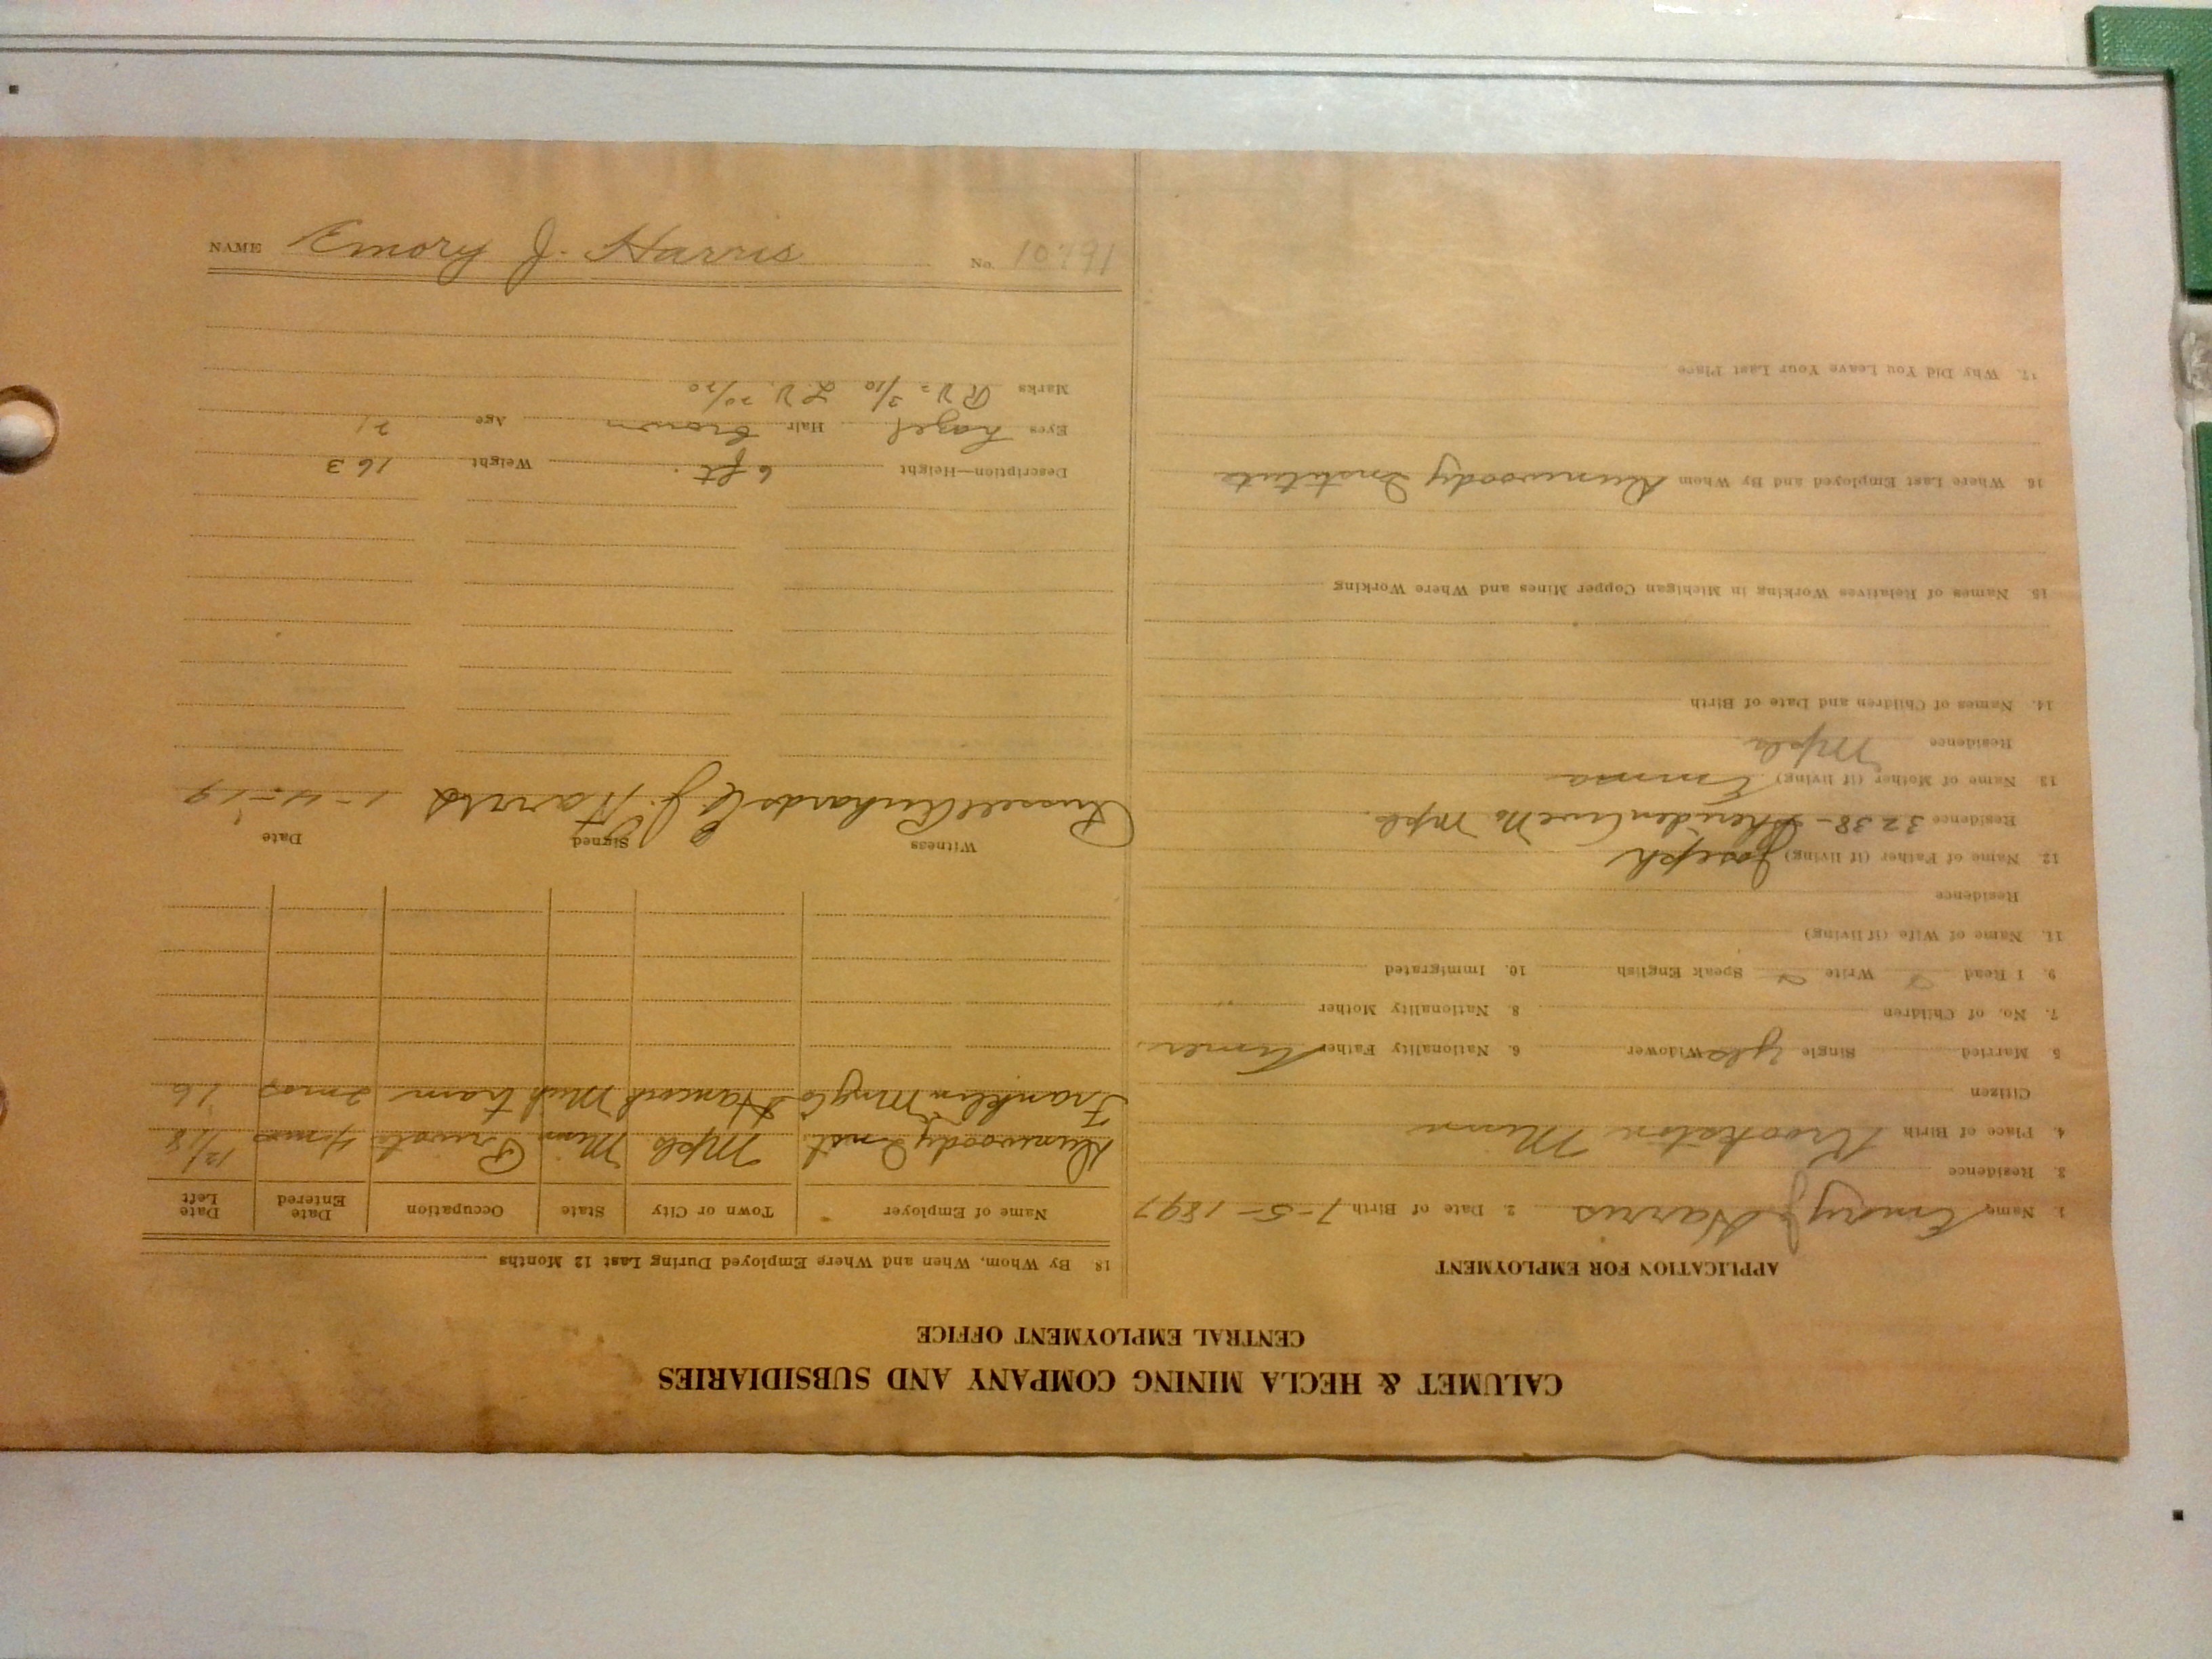 CALUMET & HECLA MINING COMPANY AND SUBSIDIARIES
CENTRAL EMPLOYMENT OFFICE
APPLICATION FOR EMPLOYMENT
1. Name Emory J Harris 2. Date of Birth 7-5-1897
3. Residence
4. Place of Birth Krookston Minn
Citizen
5 Married Single yes Widower 6. Nationality Father Amer.
7. No. of Children 8. Nationality Mother
9. I Read Write Speak English 10. Immigrated
11. Name of Wife (if living)
Residence
12. Name of Father (if living) Joseph
Residence 3238 - Sheriden Ave No Mpls.
13 Name of Mother (if living) Emma
Residence Mpls
14. Names of Children and Date of Birth
15. Names of Relatives Working in Michigan Copper Mines and Where Working
16 Where Last Employed and By Whom Dunwoody Institute
17. Why Did You Leave Your Last Place
18 By Whom, When and Where Employed During Last 12 Months
Name of Employer Town or City State Occupation Date Entered Date Left
Dunwoody Inst. Mpls Minn Private 4 mos 12/18
Franklin Mng Co Hancock Mich tram 2 mos 16
Witness Signed Date
Russell E. J. Harris 1-4-19
Description—Height 6 ft. Weight 163
Eyes hazel Hair brown Age 21
Marks R V = 2/10 L V. 20/20
NAME Emory J. Harris No. 10791